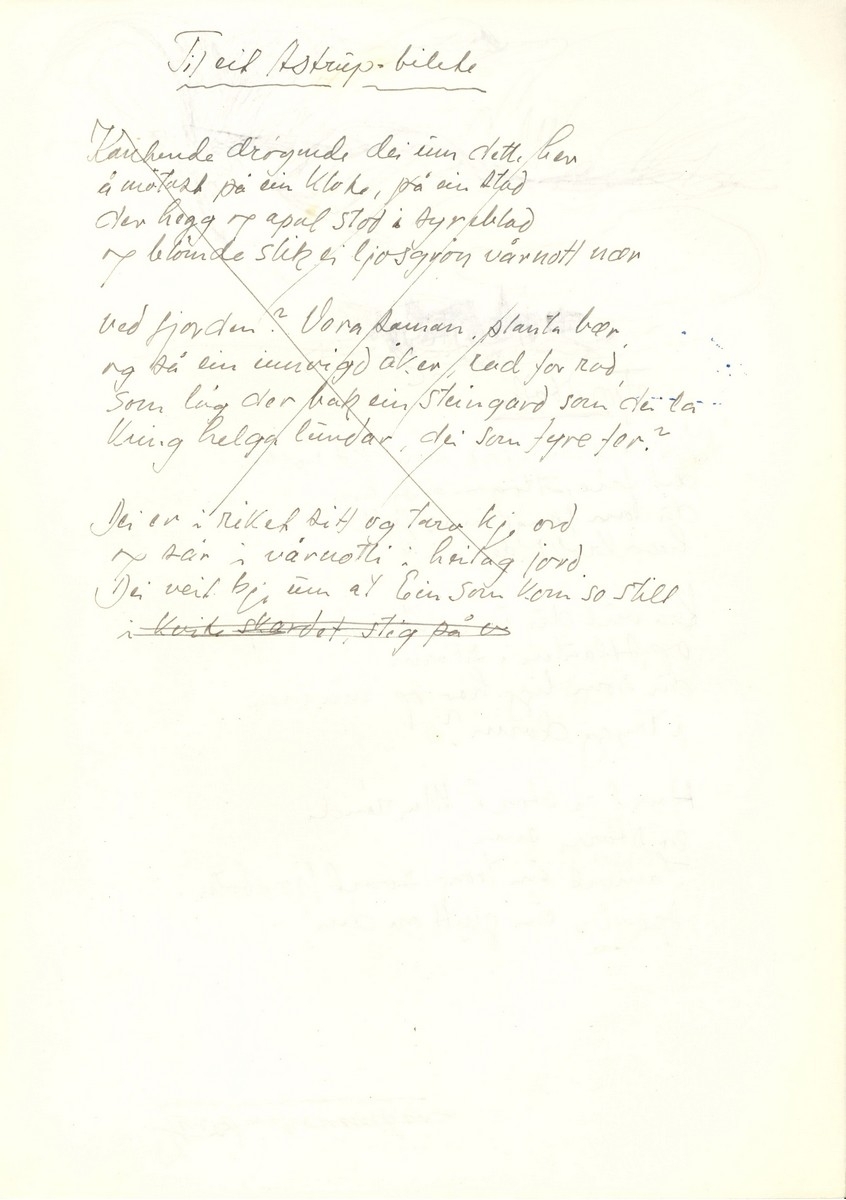 Til eit Astrup-bilete
Kanhende drøymde dei um dette her
å møtast på ein klote, på ein stad
der hegg og apal stod i syreblad
og blømde slik ei ljosgrøn vårnott nær
ved fjorden? Vera saman, planta bær
og så ein innvigd åker, rad for rad
som låg der bak ein steingard som dei la
kring helga lundar, dei som fyre fer?
Dei er i riket sitt og tarv kje ord
og sår i vårnotti i heilag jord
Dei veit kje um at Ein som kom so still
i kvite skardet, steig på